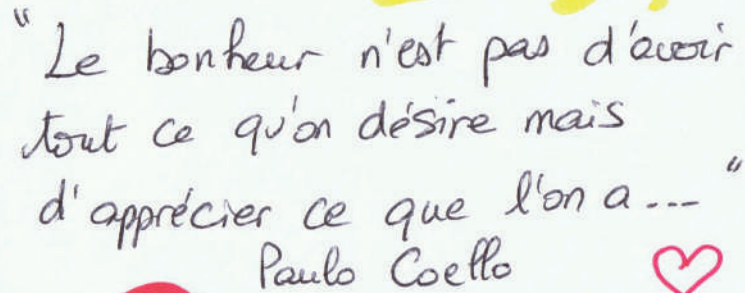 "Le bonheur n'est pas d'avoir
tout ce qu'on désire mais
d'apprécier ce que l'on a... "
Paulo Coello